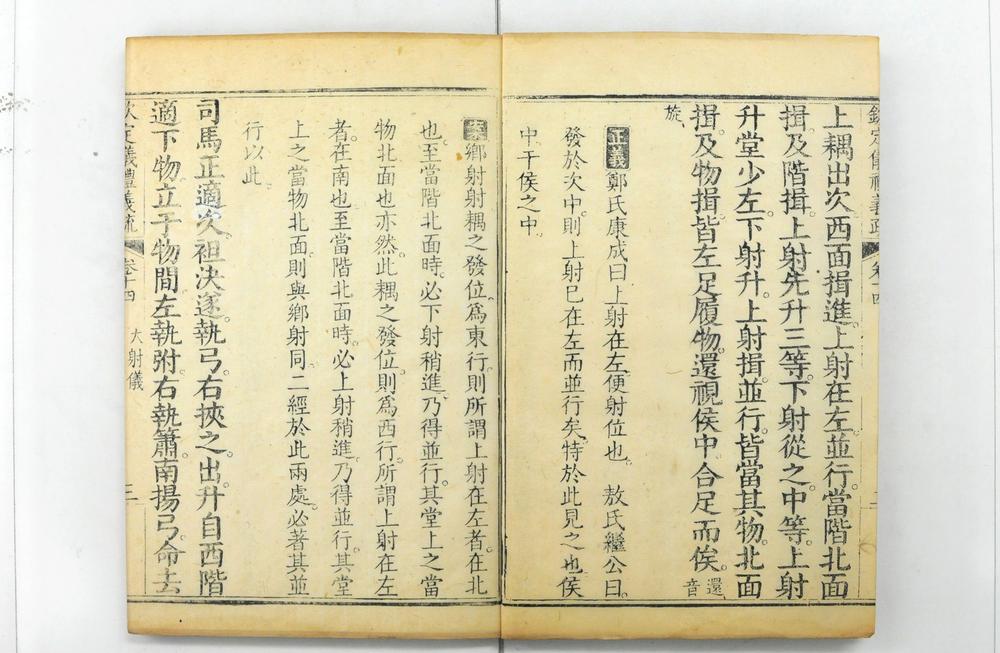 上耦出次西面揖進。上射在左。並行。當階北面
揖。及階揖。上射先升三等。下射從之中等。上射
升堂少左。下射升。上射揖並行。皆當其物。北面
揖。及物揖。皆左足履物。還視侯中。合足而俟。還音
旋。
正義鄭氏康成曰。上射在左。便射位也。 敖氏繼公曰。
發於次中。則上射已在左而並行矣。特於此見之也。侯
中。干侯之中。
案鄉射射耦之發位。爲東行。則所謂上射在左者。在北
也。至當階北面時。必下射稍進。乃得並行。其堂上之當
物北面也亦然。此耦之發位。則爲西行。所謂上射在左
者。在南也。至當階北面時。必上射稍進。乃得並行。其堂
上之當物北面。則與鄉射同。二經於此兩處。必著其並
行以此。
司馬正適次。袒決遂。執弓。右挾之。出。升自西階。
適下物。立于物間。左執弣。右執簫。南揚弓。命去
欽定儀禮義疏 卷十四 大射儀 三